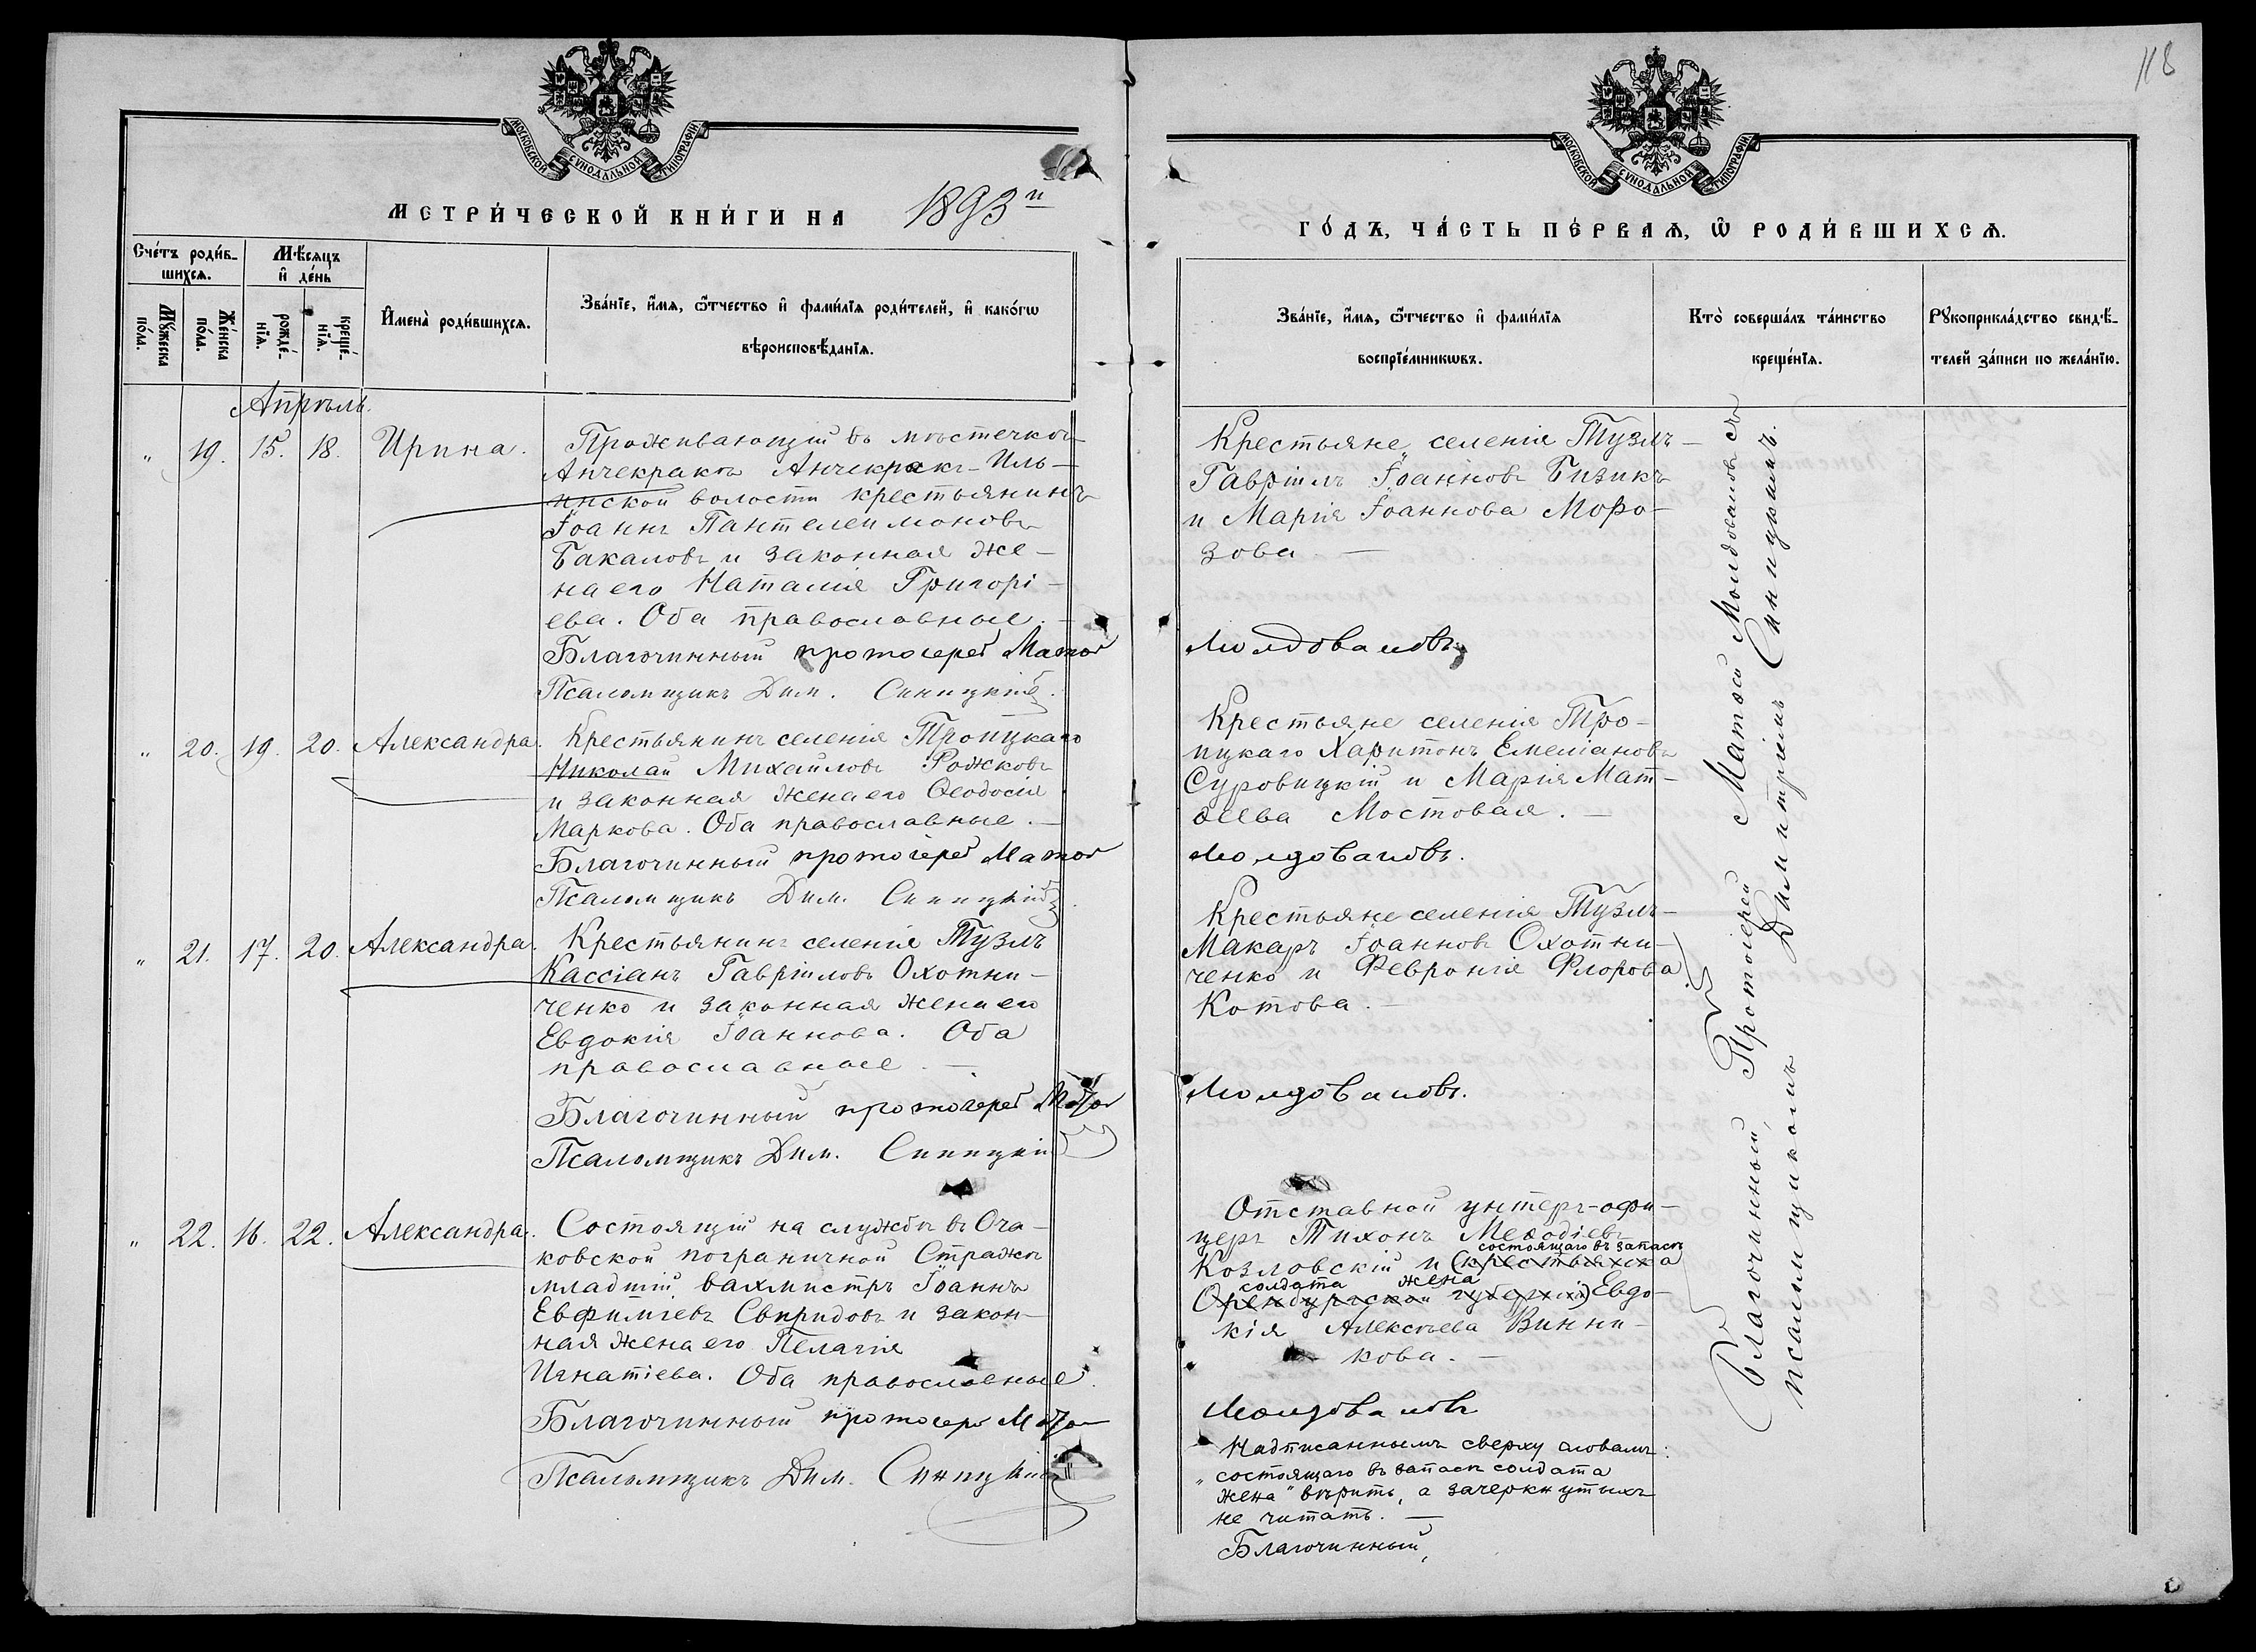 118
МОСКОВСКОЙ СУНОДАЛЬНОЙ ТИПОГРАФІИ
МОСКОВСКОЙ СУНОДАЛЬНОЙ ТИПОГРАФІИ
МЕТРИ́ЧЕСКОЙ КНИ́ГИ НА 1893й
ГО́ДЪ, ЧА́СТЬ ПЕ́РВАѦ, Ѡ҆ РОДИ́ВШИХСѦ.
Сче́тъ роди́в-
шихсѧ.
Мꙋ́жеска
по́ла.
Же́нска
по́ла.
Мѣ́сѧцъ
и҆ де́нь
рожде́-
нїѧ.
креще́-
нїѧ.
И҆мена̀ роди́вшихсѧ.
Зва́нїе, и҆́мѧ, ѻ҆́тчество и҆ фами́лїѧ роди́телей, и҆ како́гѡ
вѣроисповѣ́данїѧ.
Зва́нїе, и҆́мѧ, ѻ҆́тчество и҆ фами́лїѧ
воспрїе́мникѡвъ.
Кто̀ соверша́лъ та́инство
креще́нїѧ.
Рꙋкоприкла́дство свидѣ́-
телей за́писи по жела́нїю.
Апрѣль.
" 19. 15. 18. Ирина.
Проживающій въ мѣстечкѣ
Анчекракѣ Анчекракъ-Иль-
инской волости крестьянинъ
Іоаннъ Пантелеимоновъ
Бакаловъ и законная же-
на его Наталія Григорі-
ева. Оба православные. —
Благочинный протоіерей Матѳей
Псаломщикъ Дим. Синицкій.
Крестьяне селенія Тузлъ-
Гавріилъ Іоанновъ Бизикъ
и Марія Іоаннова Моро-
зова. —
Молдовановъ.
" 20. 19. 20. Александра.
Крестьянинъ селенія Троицкаго
Николай Михайловъ Рожковъ
и законная жена его Ѳеодосія
Маркова. Оба православные. —
Благочинный протоіерей Матѳей
Псаломщикъ Дим. Синицкій.
Крестьяне селенія Тро-
ицкаго Харитонъ Емеліановъ
Суровицкій и Марія Мат-
ѳеева Мостовая. —
Молдовановъ.
" 21. 17. 20. Александра.
Крестьянинъ селенія Тузлъ
Кассіанъ Гавріиловъ Охотни-
ченко и законная жена его
Евдокія Іоаннова. Оба
православные. —
Благочинный протоіерей Матѳей
Псаломщикъ Дим. Синицкій
Крестьяне селенія Тузлъ-
Макаръ Іоанновъ Охотни-
ченко и Февронія Флорова
Котова. —
Молдовановъ.
" 22. 16. 22. Александра.
Состоящій на службѣ въ Оча-
ковской пограничной Стражѣ
младшій вахмистръ Іоаннъ
Евфиміевъ Свиридовъ и закон-
ная жена его Пелагія
Игнатіева. Оба православные.
Благочинный протоіерей Матѳей
Псаломщикъ Дим. Синицкій
Отставной унтеръ-офи-
церъ Тихонъ Меѳодіевъ
состоящаго въ запасѣ
Козловскій и (крестьянска
солдата жена
Оренбургской губерніи) Евдо-
кія Алексѣева Винни-
кова. —
Молдовановъ
Надписаннымъ сверху словамъ:
"состоящаго въ запасѣ солдата
жена" вѣрить, а зачеркнутыхъ
не читать. —
Благочинный,
Благочинный, Протоіерей Матѳей Молдовановъ съ
псаломщикомъ Димитріемъ Синицкимъ.